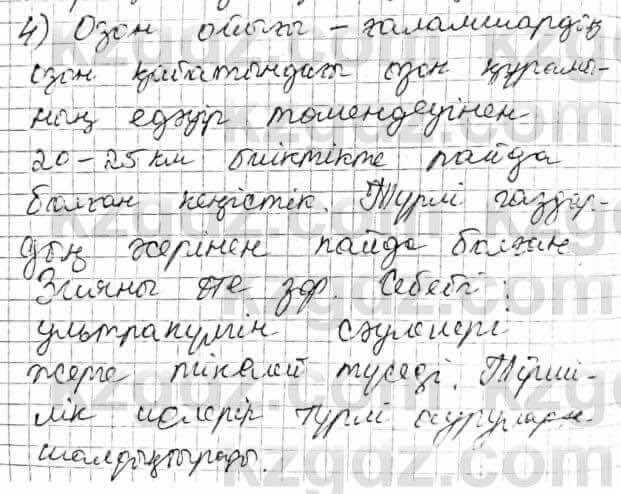 4) Озон ойығы – ғаламшардың
озон қабатындағы озон құрамы-
ның едәуір төмендеуінен
20-25 км биіктікте пайда
болған кеңістік. Түрлі газдар-
дың әсерінен пайда болған
Зияны өте зор. Себебі
ультракүлгін сәулелері
жерге тікелей түседі. Тірші-
лік иелерін түрлі ауруларға
шалдықтырады.
kzgdz.com